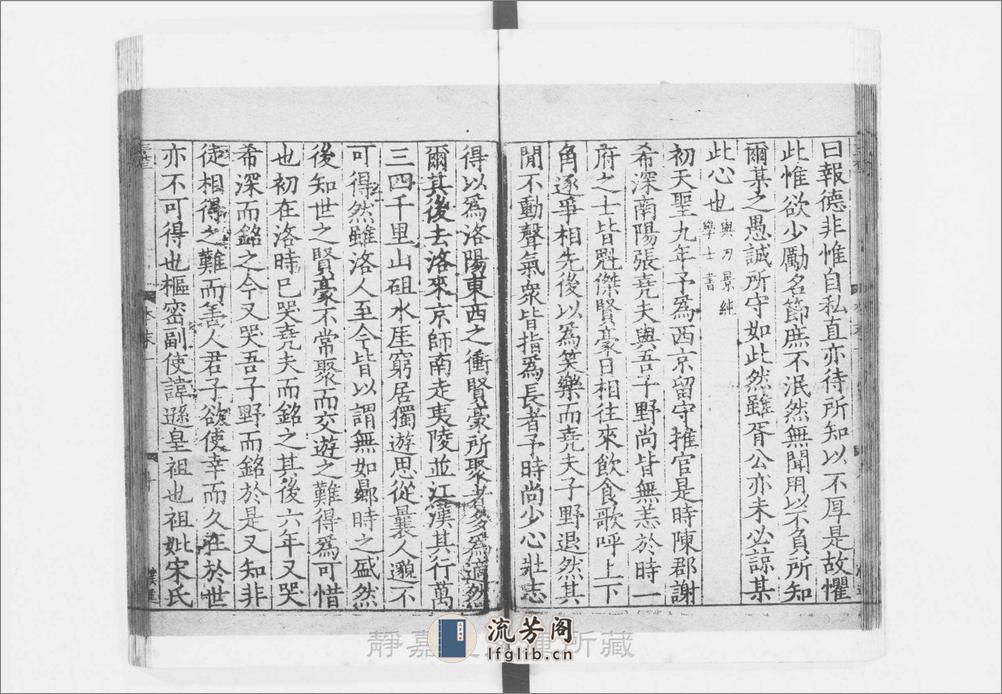 曰報德非惟自私直亦待所知以不厚是故懼
此惟欲少勵名節庶不泯然無聞用以不負所知
爾某之愚誠所守如此然雖胥公亦未必諒某
此心也與刁景純學士書
初天聖九年予為西京留守推官是時陳郡謝
希深南陽張堯夫與吾子野尚皆無恙於時一
府之士皆魁傑賢豪日相往來飲食歌呼上下
角逐爭相先後以為笑樂而堯夫子野退然其
閒不動聲氣衆皆指為長者予時尚少心壯志
得以為洛陽東西之衝賢豪所聚者多為適然
爾其後去洛來京師南走夷陵並江漢其行萬
三四千里山砠水厓窮居獨遊思從曩人邈不
可得然雖洛人至今皆以謂無如嚮時之盛然
後知世之賢豪不常聚而交遊之難得為可惜
也初在洛時已哭堯夫而銘之其後六年又哭
希深而銘之今又哭吾子野而銘於是又知非
徒相得之難而善人君子欲使幸而久在於世
亦不可得也樞密副使諱遜皇祖也祖妣宋氏
靜嘉 所藏
流芳阁
lfglib.cn